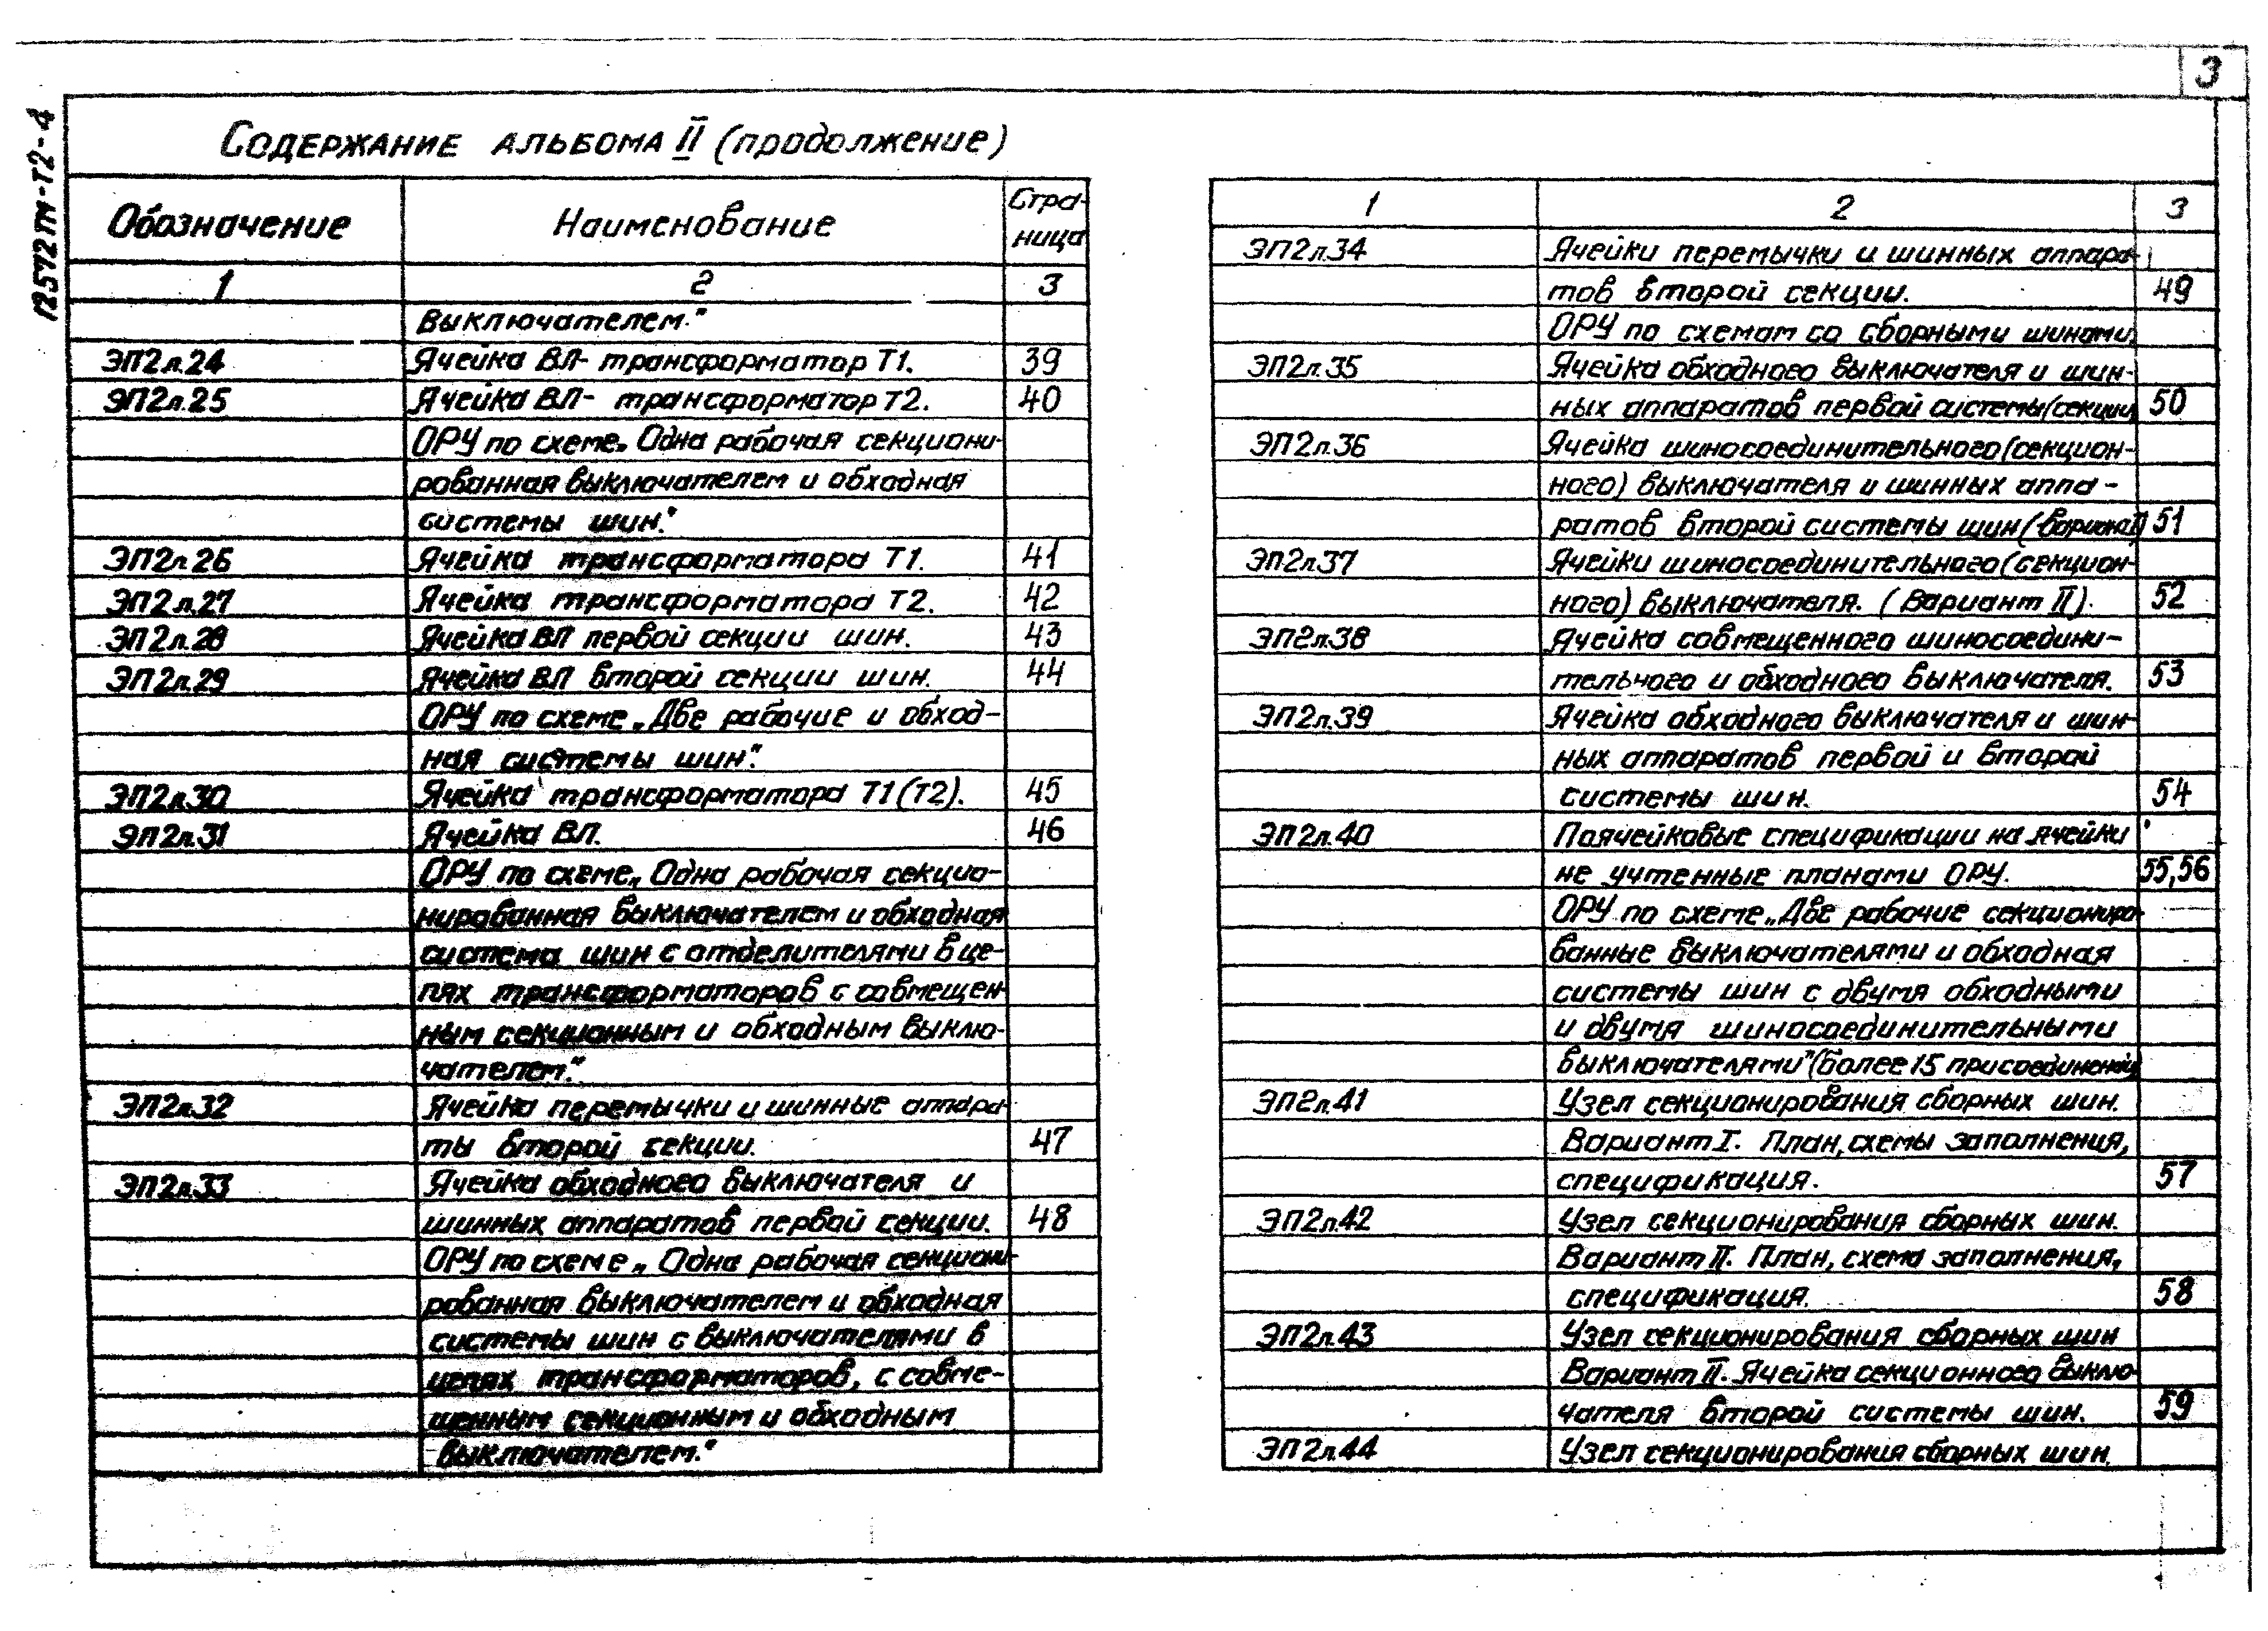 3
12572тм-т2-4
Содержание альбома II (продолжение)
Обозначение Наименование Стра-
ница
1 2 3
выключателем."
ЭП2л.24 Ячейка ВЛ- трансформатор Т1. 39
ЭП2л.25 Ячейка ВЛ- трансформатор Т2. 40
ОРУ по схеме „Одна рабочая секциони-
рованная выключателем и обходная
системы шин."
ЭП2л.26 Ячейка трансформатора Т1. 41
ЭП2л.27 Ячейка трансформатора Т2. 42
ЭП2л.28 Ячейка ВЛ первой секции шин. 43
ЭП2л.29 Ячейка ВЛ второй секции шин. 44
ОРУ по схеме „Две рабочие и обход-
ная системы шин".
ЭП2л.30 Ячейка трансформатора Т1(Т2). 45
ЭП2л.31 Ячейка ВЛ. 46
ОРУ по схеме „Одна рабочая секцио-
нированная выключателем и обходная
система шин с отделителями в це-
пях трансформаторов с совмещен-
ным секционным и обходным выклю-
чателем."
ЭП2л.32 Ячейка перемычки и шинные аппара-
ты второй секции. 47
ЭП2л.33 Ячейка обходного выключателя и
шинных аппаратов первой секции. 48
ОРУ по схеме „Одна рабочая секциони-
рованная выключателем и обходная
системы шин с выключателями в
цепях трансформаторов, с совме-
щенным секционным и обходным
выключателем."
1 2 3
ЭП2л.34 Ячейки перемычки и шинных аппара-
тов второй секции. 49
ОРУ по схемам со сборными шинами.
ЭП2л.35 Ячейка обходного выключателя и шин-
ных аппаратов первой системы(секции) 50
ЭП2л.36 Ячейка шиносоединительного(секцион-
ного) выключателя и шинных аппа-
ратов второй системы шин (вариант I) 51
ЭП2л.37 Ячейки шиносоединительного(секцион-
ного) выключателя. (Вариант II). 52
ЭП2л.38 Ячейка совмещенного шиносоедини-
тельного и обходного выключателя. 53
ЭП2л.39 Ячейка обходного выключателя и шин-
ных аппаратов первой и второй
системы шин. 54
ЭП2л.40 Поячейковые спецификации на ячейки
не учтенные планами ОРУ. 55,56
ОРУ по схеме „Две рабочие секциониро-
ванные выключателями и обходная
системы шин с двумя обходными
и двумя шиносоединительными
выключателями" (более 15 присоединений)
ЭП2л.41 Узел секционирования сборных шин.
Вариант I. План, схемы заполнения,
спецификация. 57
ЭП2л.42 Узел секционирования сборных шин.
Вариант II. План, схема заполнения,
спецификация. 58
ЭП2л.43 Узел секционирования сборных шин
Вариант II. Ячейка секционного выклю-
чателя второй системы шин. 59
ЭП2л.44 Узел секционирования сборных шин.